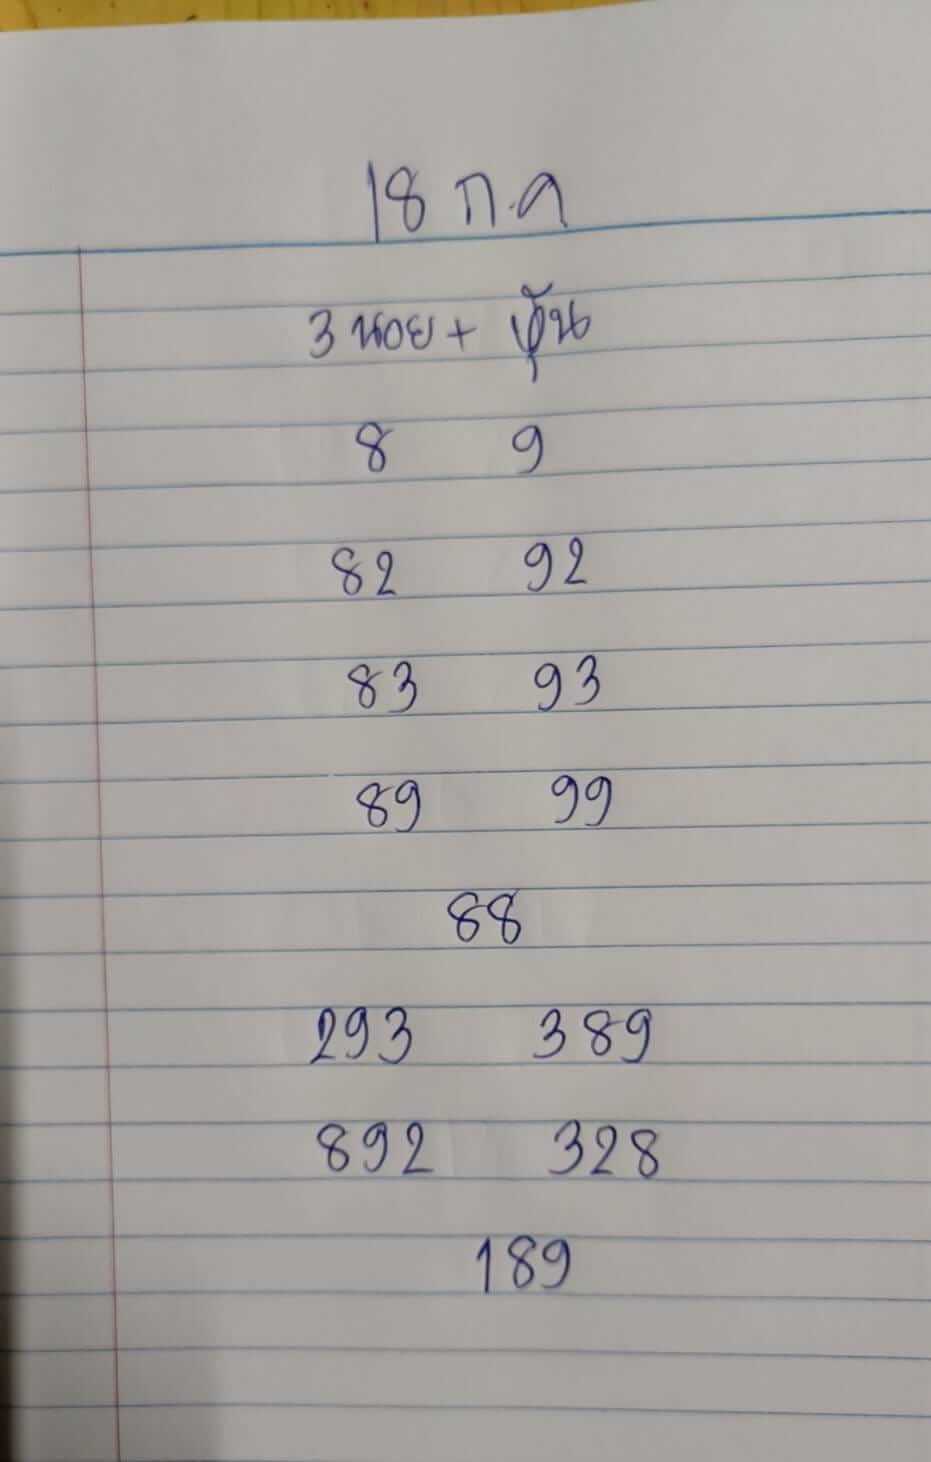 18 ก.ค
3 นอย + หุ้น
8 9
82 92
83 93
89 99
88
293 389
892 328
189